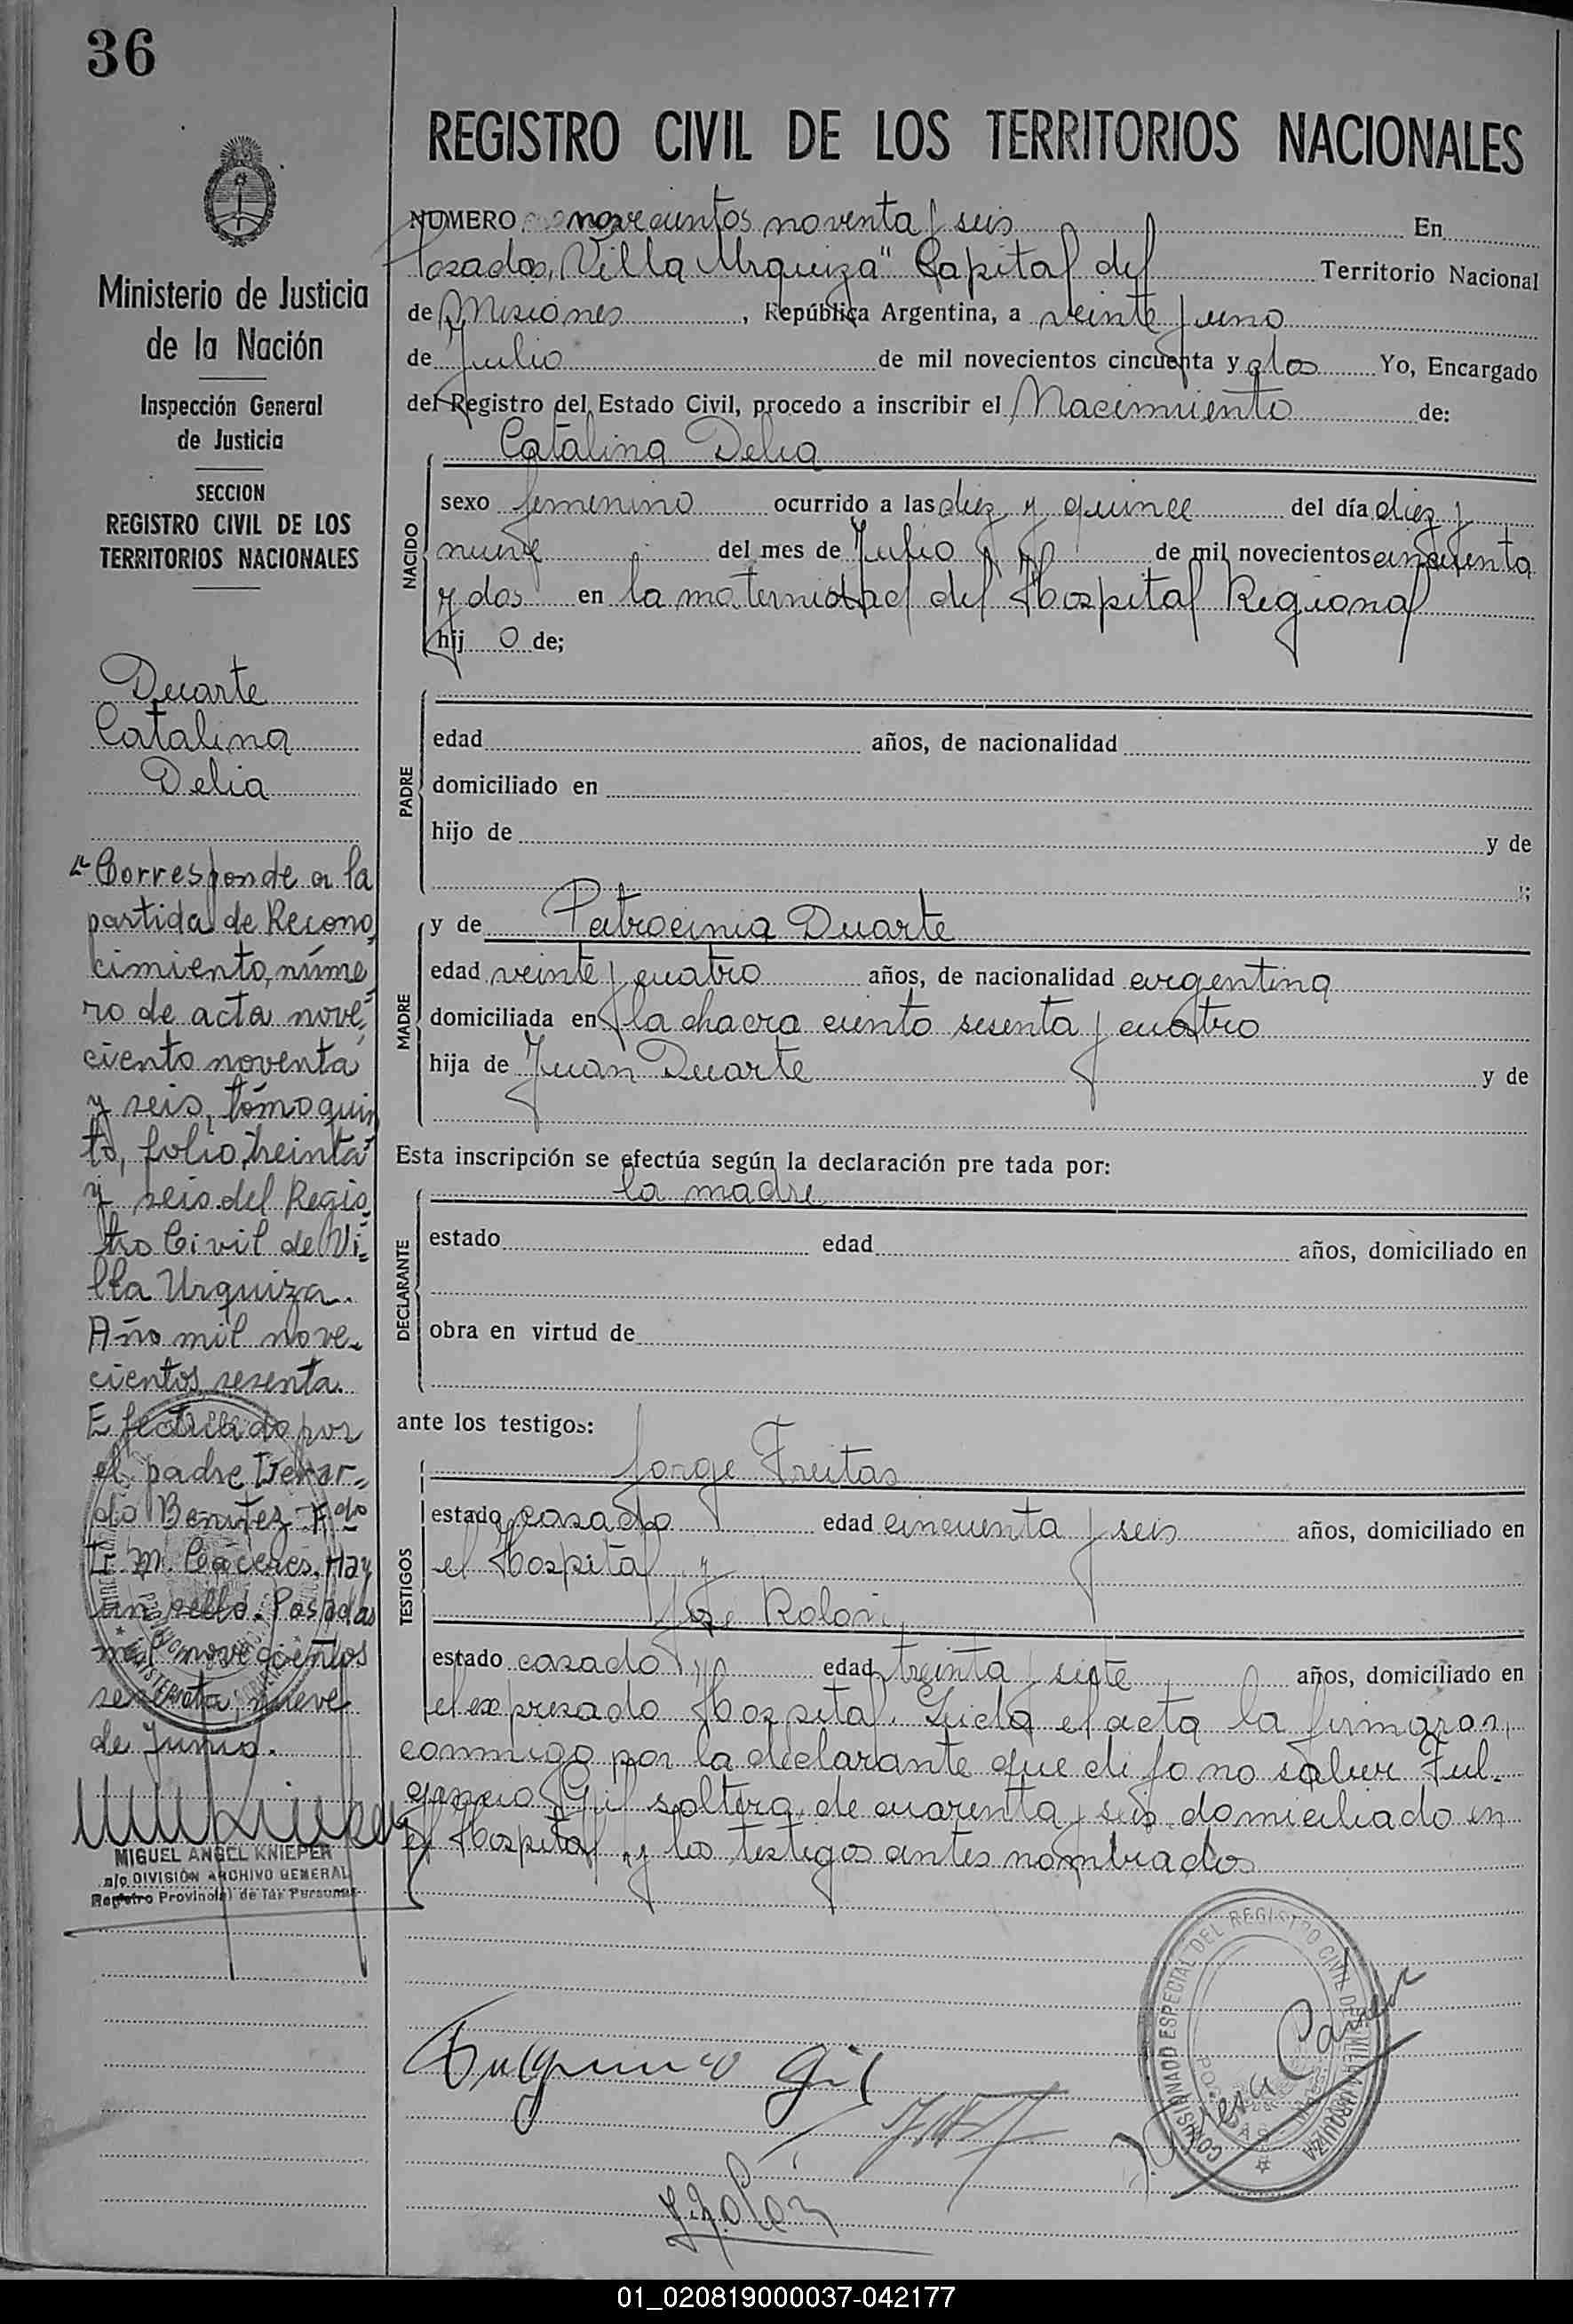 36
Ministerio de Justicia
de la Nación
Inspección General
de Justicia
SECCION
REGISTRO CIVIL DE LOS
TERRITORIOS NACIONALES
Duarte
Catalina
Delia
"Corresponde a la
partida de Recono-
cimiento, núme-
ro de acta nove-
ciento noventa
y seis, tomo quin
to, folio treinta
y seis del Regis-
tro Civil de Vi-
lla Urquiza.
Año mil nove-
cientos sesenta.
Efectuado por
el padre Gerar-
do Benitez Fdo
M. Cáceres. Hay
un sello. Posadas
mil novecientos
sesenta, nueve
de Junio.
MIGUEL ANGEL KNIEPER
a/c DIVISIÓN ARCHIVO GENERAL
Registro Provincial de las Personas
REGISTRO CIVIL DE LOS TERRITORIOS NACIONALES
NUMERO novecientos noventa y seis En
Posadas, "Villa Urquiza" Capital del Territorio Nacional
de Misiones, República Argentina, a veinte y uno
de Julio de mil novecientos cincuenta y dos Yo, Encargado
del Registro del Estado Civil, procedo a inscribir el Nacimiento de:
Catalina Delia
NACIDO
sexo femenino ocurrido a las diez y quince del día diez y
nueve del mes de Julio de mil novecientos cincuenta
y dos en la maternidad del Hospital Regional
hij o de;
PADRE
edad años, de nacionalidad
domiciliado en
hijo de y de
MADRE
y de Patrocinia Duarte
edad veinte y cuatro años, de nacionalidad argentina
domiciliada en la chacra ciento sesenta y cuatro
hija de Juan Duarte y de
Esta inscripción se efectúa según la declaración pre tada por:
la madre
DECLARANTE
estado edad años, domiciliado en
obra en virtud de
ante los testigos:
TESTIGOS
Jorge Freitas
estado casado edad cincuenta y seis años, domiciliado en
el Hospital y
José Rolon
estado casado edad treinta y siete años, domiciliado en
el expresado Hospital. Leida el acta la firmaron,
conmigo por la declarante que dijo no saber Ful-
gencio Gil soltero, de cuarenta y seis domiciliado en
el Hospital y los testigos antes nombrados
Fulgencio Gil
J. Rolón
COMISIONADO ESPECIAL DEL REGISTRO CIVIL DE VILLA URQUIZA
01_020819000037-042177